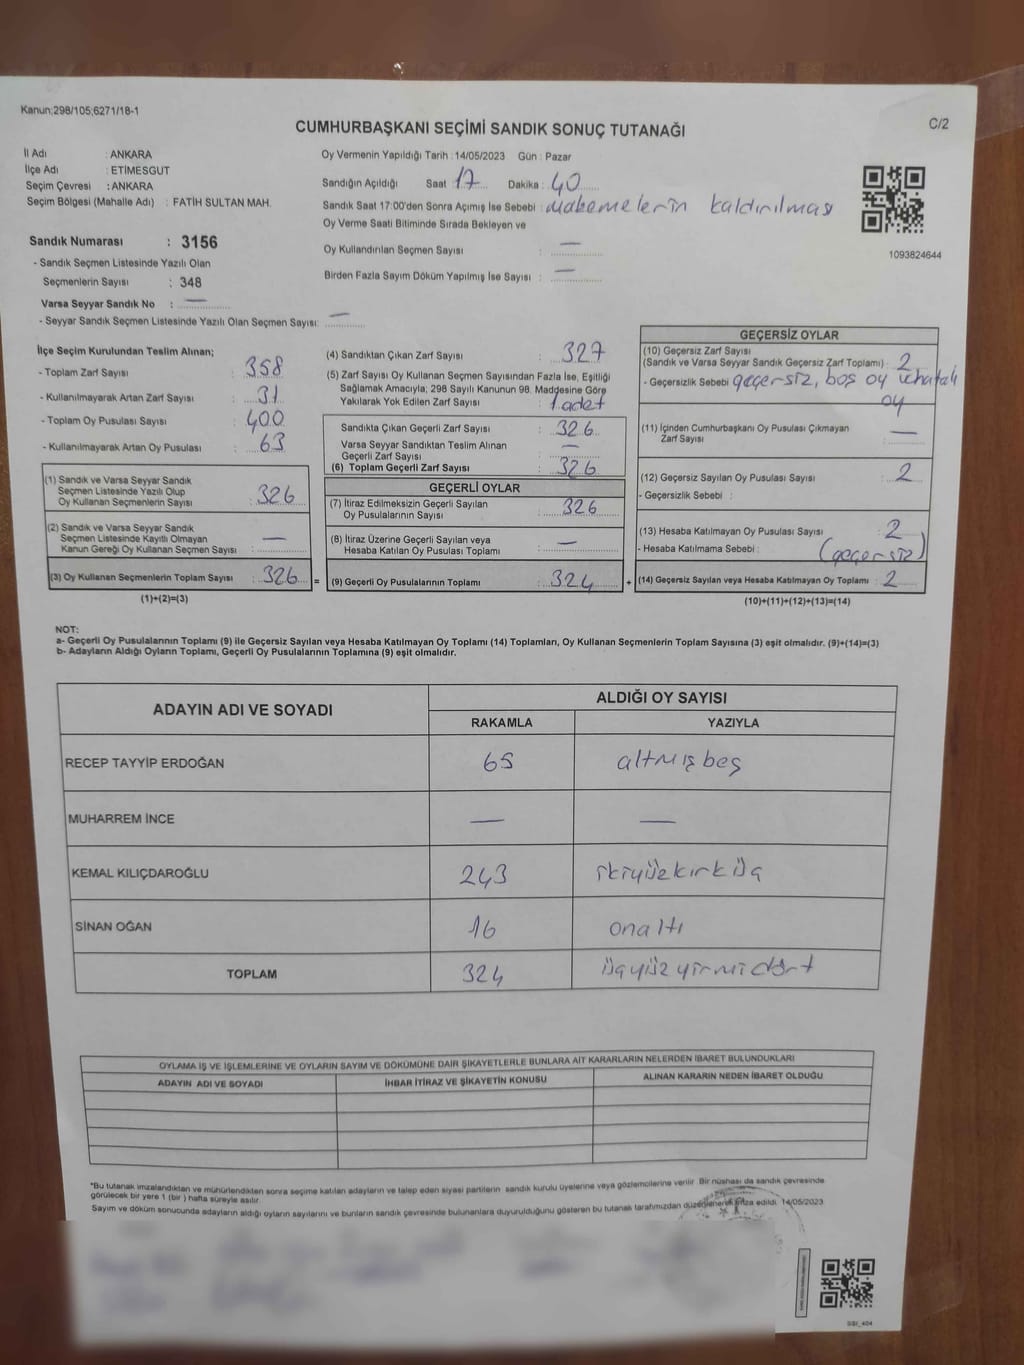 Kanun;298/105;6271/18-1
CUMHURBAŞKANI SEÇİMİ SANDIK SONUÇ TUTANAĞI
C/2
İl Adı : ANKARA
İlçe Adı : ETİMESGUT
Seçim Çevresi : ANKARA
Seçim Bölgesi (Mahalle Adı) : FATİH SULTAN MAH.
Sandık Numarası : 3156
- Sandık Seçmen Listesinde Yazılı Olan
Seçmenlerin Sayısı : 348
Varsa Seyyar Sandık No : —
- Seyyar Sandık Seçmen Listesinde Yazılı Olan Seçmen Sayısı: —
Oy Vermenin Yapıldığı Tarih : 14/05/2023 Gün : Pazar
Sandığın Açıldığı Saat : 17 Dakika : 40
Sandık Saat 17:00'den Sonra Açımış İse Sebebi : makemelerin kaldırılması
Oy Verme Saati Bitiminde Sırada Bekleyen ve
Oy Kullandırılan Seçmen Sayısı : —
Birden Fazla Sayım Döküm Yapılmış İse Sayısı : —
1093824644
İlçe Seçim Kurulundan Teslim Alınan;
- Toplam Zarf Sayısı : 358
- Kullanılmayarak Artan Zarf Sayısı : 31
- Toplam Oy Pusulası Sayısı : 400
- Kullanılmayarak Artan Oy Pusulası : 63
(1) Sandık ve Varsa Seyyar Sandık
Seçmen Listesinde Yazılı Olup
Oy Kullanan Seçmenlerin Sayısı : 326
(2) Sandık ve Varsa Seyyar Sandık
Seçmen Listesinde Kayıtlı Olmayan
Kanun Gereği Oy Kullanan Seçmen Sayısı : —
(3) Oy Kullanan Seçmenlerin Toplam Sayısı : 326 =
(1)+(2)=(3)
(4) Sandıktan Çıkan Zarf Sayısı : 327
(5) Zarf Sayısı Oy Kullanan Seçmen Sayısından Fazla İse, Eşitliği
Sağlamak Amacıyla; 298 Sayılı Kanunun 98. Maddesine Göre
Yakılarak Yok Edilen Zarf Sayısı : 1 adet
Sandıkta Çıkan Geçerli Zarf Sayısı : 326
Varsa Seyyar Sandıktan Teslim Alınan
Geçerli Zarf Sayısı : —
(6) Toplam Geçerli Zarf Sayısı : 326
GEÇERLİ OYLAR
(7) İtiraz Edilmeksizin Geçerli Sayılan
Oy Pusulalarının Sayısı : 326
(8) İtiraz Üzerine Geçerli Sayılan veya
Hesaba Katılan Oy Pusulası Toplamı : —
(9) Geçerli Oy Pusulalarının Toplamı : 324 +
GEÇERSİZ OYLAR
(10) Geçersiz Zarf Sayısı
(Sandık ve Varsa Seyyar Sandık Geçersiz Zarf Toplamı) : 2
- Geçersizlik Sebebi : geçersiz, boş oy
oy
(11) İçinden Cumhurbaşkanı Oy Pusulası Çıkmayan
Zarf Sayısı : —
(12) Geçersiz Sayılan Oy Pusulası Sayısı : 2
- Geçersizlik Sebebi :
(13) Hesaba Katılmayan Oy Pusulası Sayısı : 2
- Hesaba Katılmama Sebebi : (geçersiz)
(14) Geçersiz Sayılan veya Hesaba Katılmayan Oy Toplamı : 2
(10)+(11)+(12)+(13)=(14)
NOT:
a- Geçerli Oy Pusulalarının Toplamı (9) ile Geçersiz Sayılan veya Hesaba Katılmayan Oy Toplamı (14) Toplamları, Oy Kullanan Seçmenlerin Toplam Sayısına (3) eşit olmalıdır. (9)+(14)=(3)
b- Adayların Aldığı Oyların Toplamı, Geçerli Oy Pusulalarının Toplamına (9) eşit olmalıdır.
ADAYIN ADI VE SOYADI ALDIĞI OY SAYISI
RAKAMLA YAZIYLA
RECEP TAYYİP ERDOĞAN 65 altmışbeş
MUHARREM İNCE — —
KEMAL KILIÇDAROĞLU 243 ikiyüzkırküç
SİNAN OĞAN 16 onaltı
TOPLAM 324 üçyüzyirmidört
OYLAMA İŞ VE İŞLEMLERİNE VE OYLARIN SAYIM VE DÖKÜMÜNE DAİR ŞİKAYETLERLE BUNLARA AİT KARARLARIN NELERDEN İBARET BULUNDUKLARI
ADAYIN ADI VE SOYADI İHBAR İTİRAZ VE ŞİKAYETİN KONUSU ALINAN KARARIN NEDEN İBARET OLDUĞU
*Bu tutanak imzalandıktan ve mühürlendikten sonra seçime katılan adayların ve talep eden siyasi partilerin sandık kurulu üyelerine veya gözlemcilerine verilir. Bir nüshası da sandık çevresinde
görülecek bir yere 1 (bir) hafta süreyle asılır.
Sayım ve döküm sonucunda adayların aldığı oyların sayılarını ve bunların sandık çevresinde bulunanlara duyurulduğunu gösteren bu tutanak tarafımızdan düzenlenerek imza edildi. 14/05/2023
SSI_404